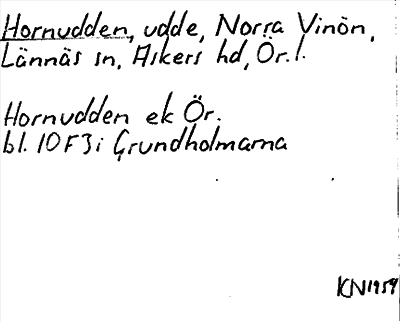 Hornudden, udde, Norra Vinön,
Lännäs sn, Askers hd, Ör. l.
Hornudden ek Ör.
bl. 10F3i Grundholmarna
KN1959